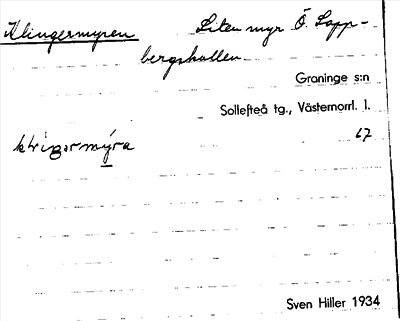 Klingermyren Liten myr Ö. Lapp-
bergshallen
Graninge s:n
Sollefteå tg., Västernorrl. l.
67
Sven Hiller 1934